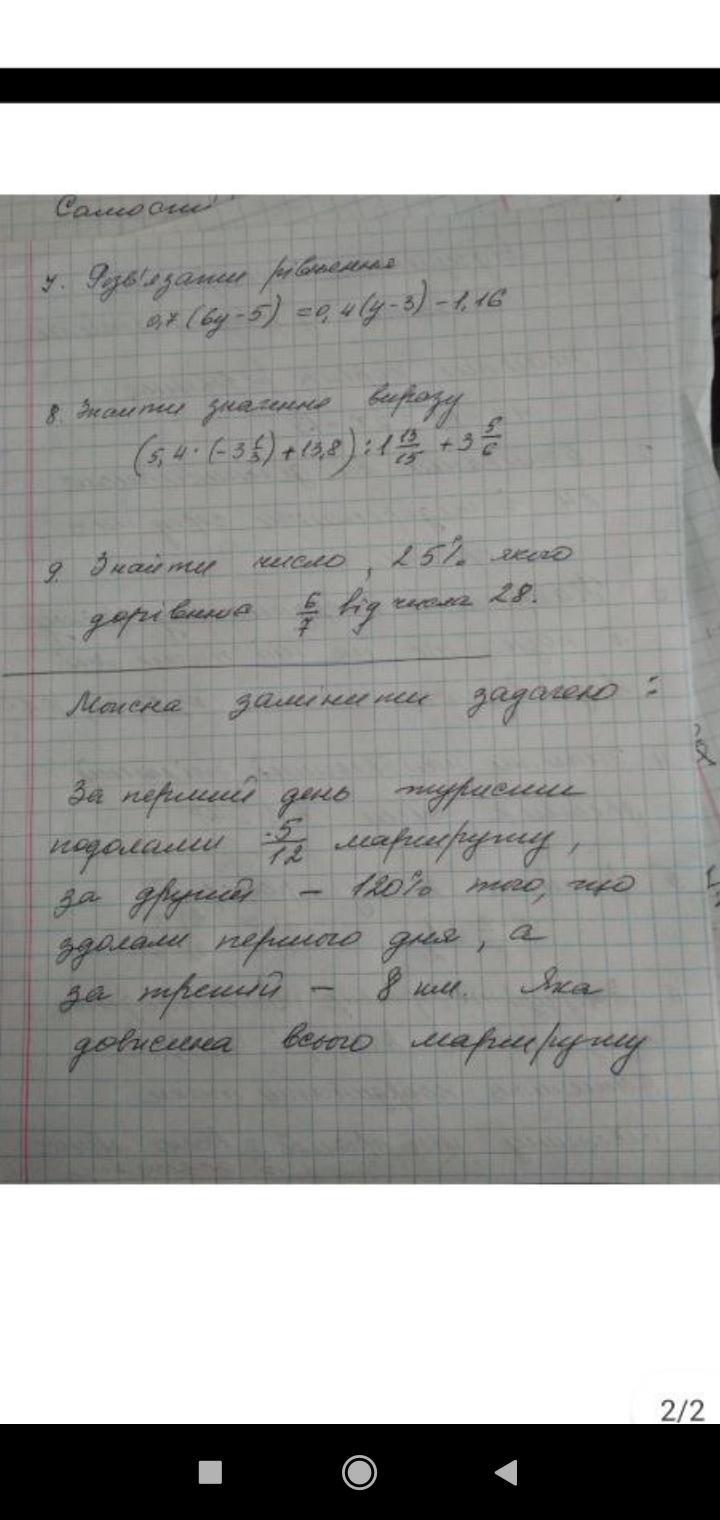 Самост
7. Розв'язати рівняння
0,7(6y-5) = 0,4(y-3) - 1,16
8. Знайти значення виразу
(5,4 · (-3 1/3) + 13,8) : 1 13/15 + 3 5/6
9. Знайти число, 25% якого
дорівнює 6/7 від числа 28.
Можна замінити задачею:
За перший день туристи
подолали 5/12 маршруту,
за другий - 120% того, що
здолали першого дня, а
за третій - 8 км. Яка
довжина всього маршруту
2/2